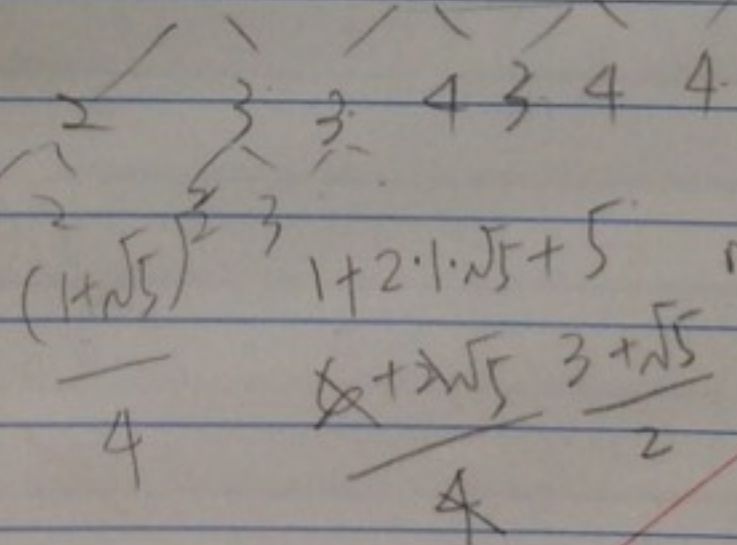 2 3 3 4 3 4 4
2 2 3
(1+√5)² 1+2·1·√5+5
6+2√5 3+√5
4 4 2